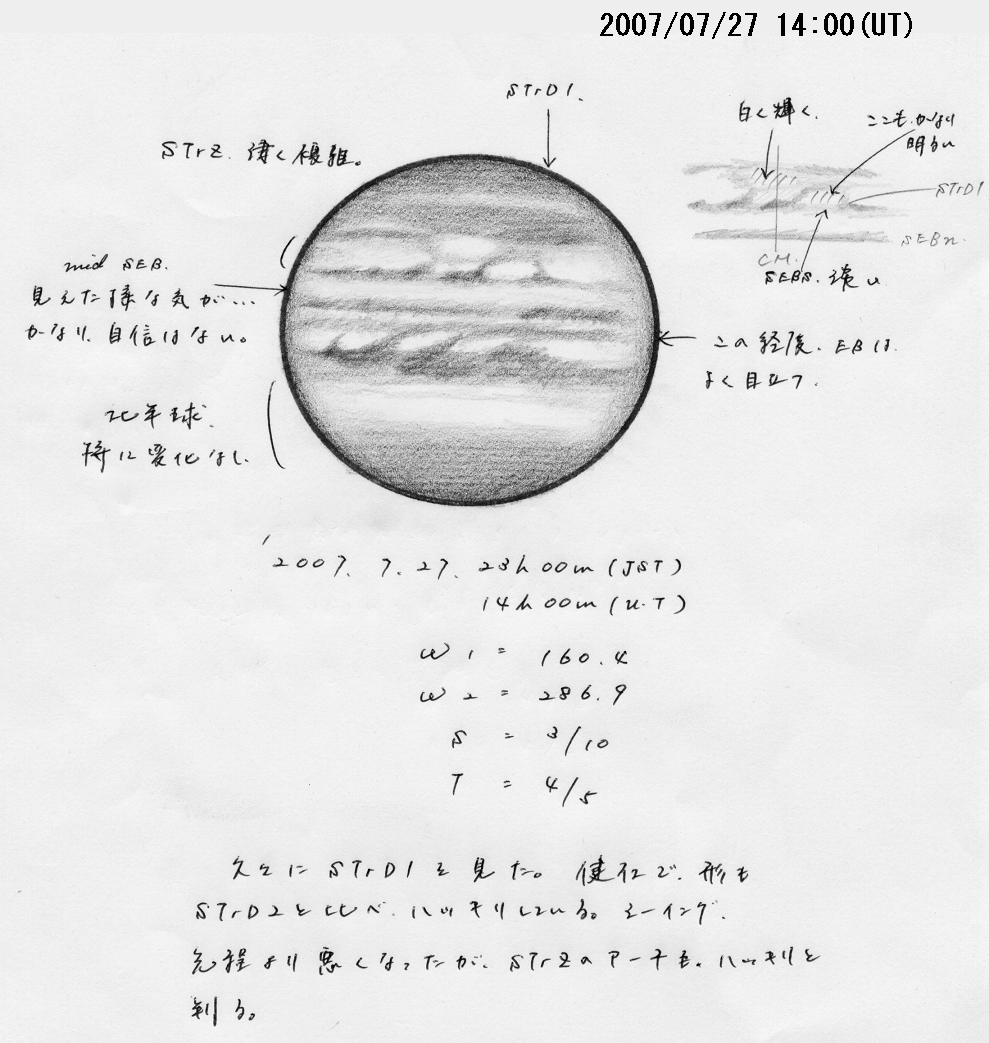 2007/07/27 14:00(UT)
STrD1.
STrZ. 薄く複雑。
白く輝く.
ここも.かなり
明るい
STrD1
SEBn.
CM.
SEBs. 濃い
mid SEB.
見えた様な気が...
かなり、自信はない。
この経度. EBは.
よく目立つ.
北半球.
特に変化なし.
'2007. 7. 27. 23h 00m (JST)
14h 00m (U.T)
ω1 = 160.4
ω2 = 286.9
S = 3/10
T = 4/5
久々に STrD1を見た。健在で、形も
STrD2と比べ、ハッキリしている。シーイング、
先程より悪くなったが、STrZのアーチも。ハッキリと
判る。